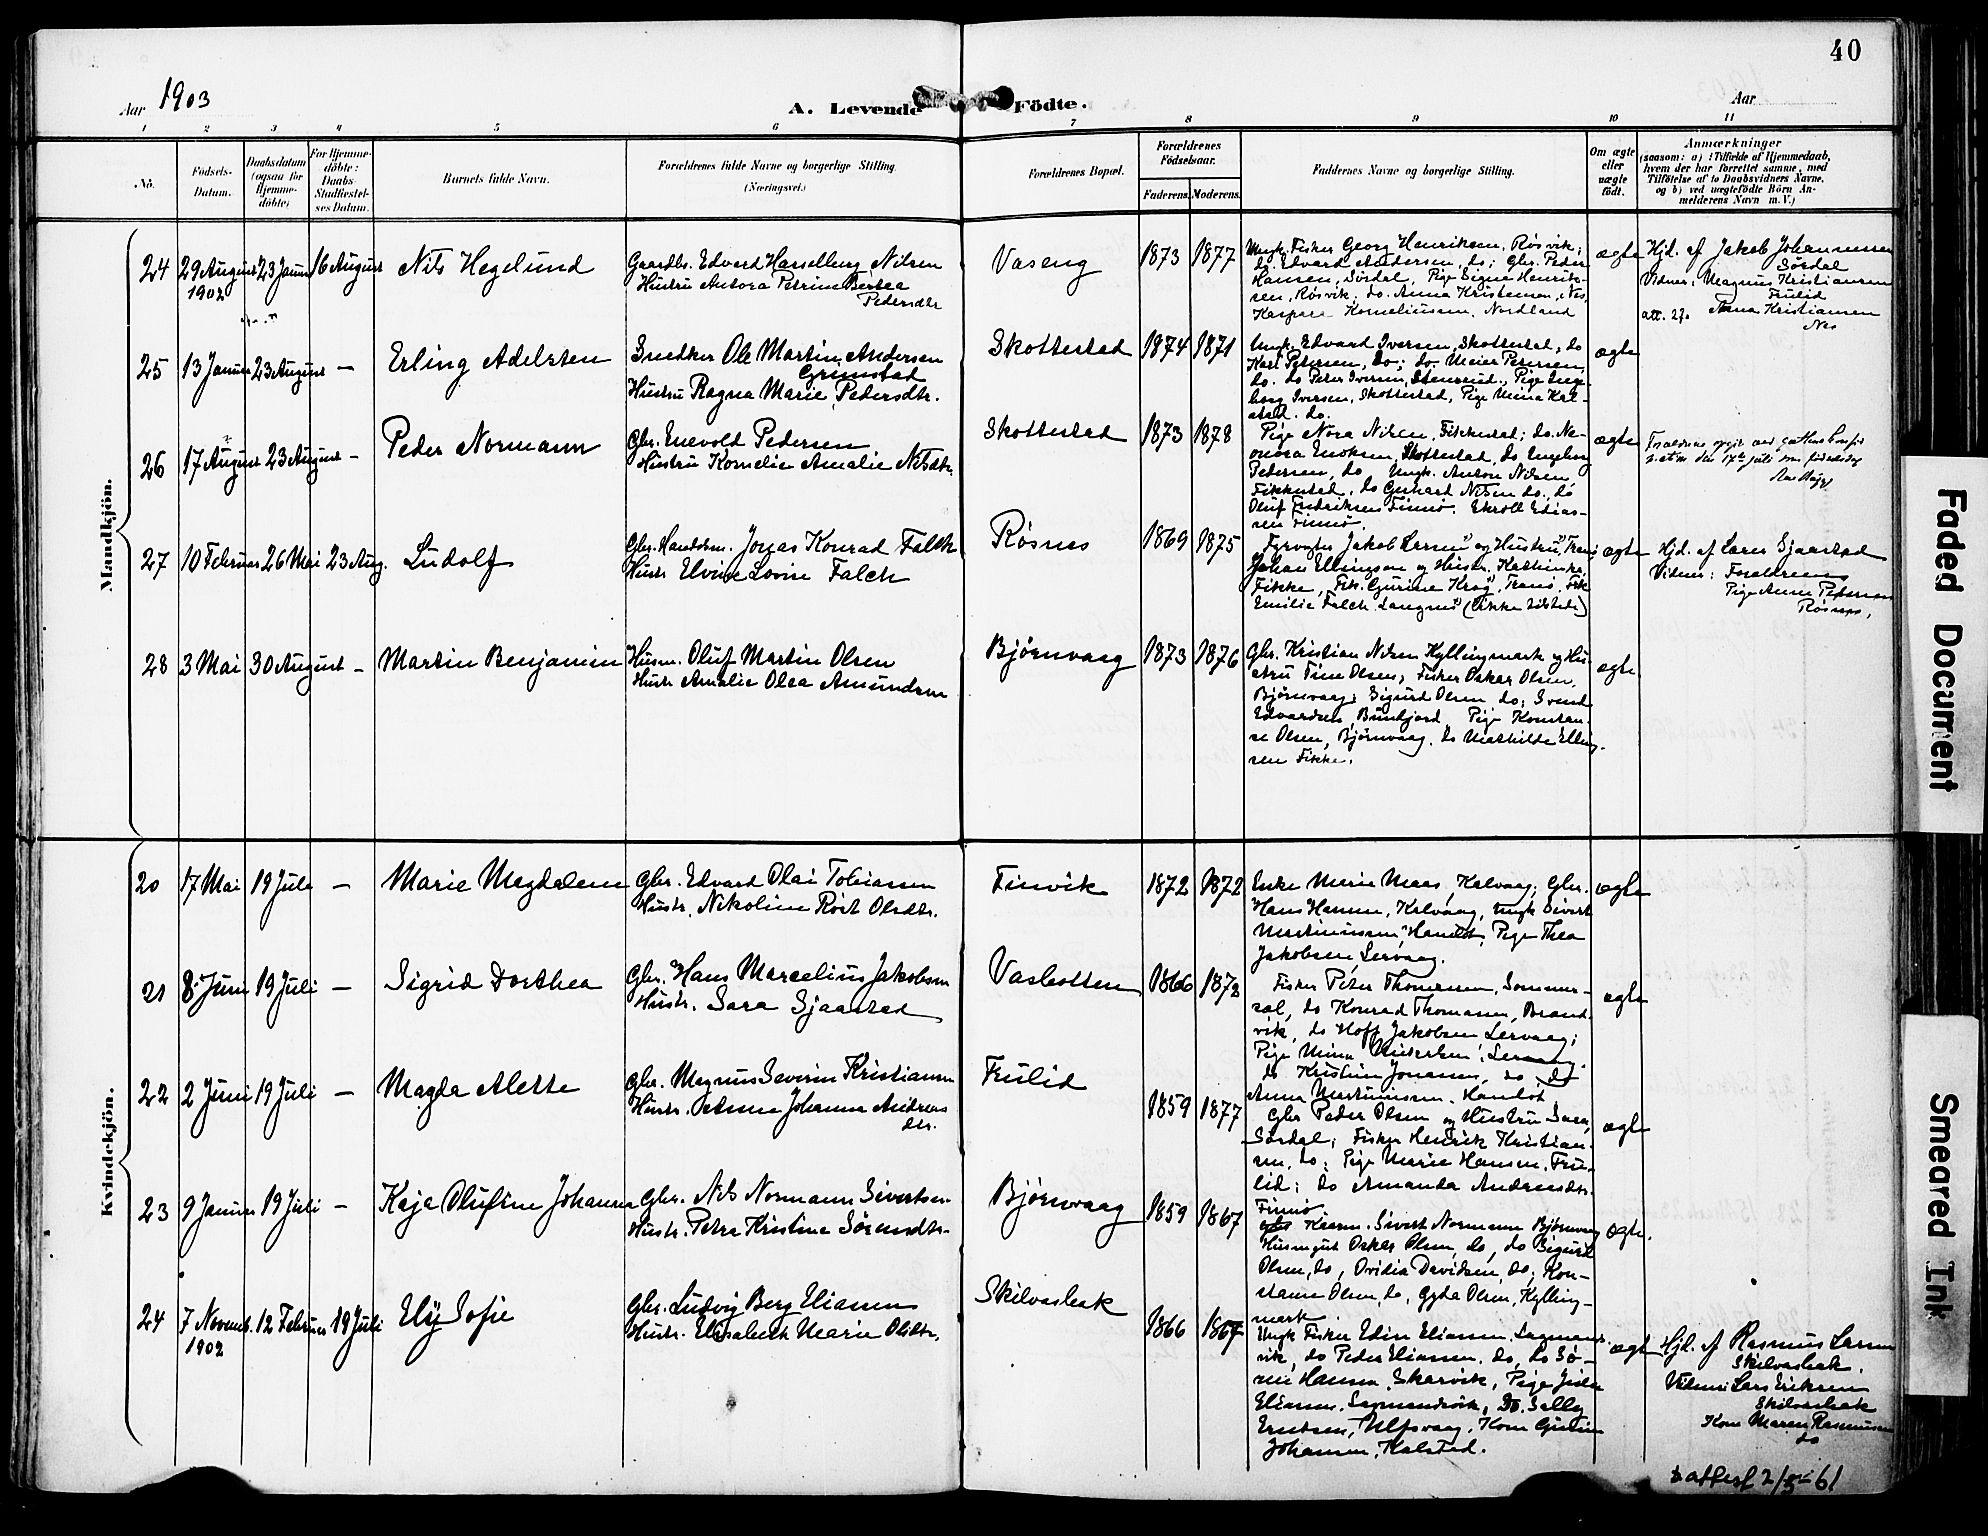 40
Aar 1903
A. Levende Födte.
Aar
1 2 3 4 5 6 7 8 9 10 11
No.
Födsels-Datum.
Daabsdatum (ogsaa for Hjemme-döbte)
For Hjemme-döbte: Daabs-Stadfæstel-ses Datum.
Barnets fulde Navn.
Forældrenes fulde Navne og borgerlige Stilling. (Næringsvei.)
Forældrenes Bopæl.
Forældrenes Födselsaar.
Faderens. Moderens.
Faddernes Navne og borgerlige Stilling.
Om ægte eller uægte födt.
Anmærkninger
(saasom: a) i Tilfælde af Hjemmedaab, hvem der har forrettet samme, med Tilföielse af to Daabsvidners Navne, og b) ved uægtefödte Börn An-melderens Navn m. V.)
Mandkjön.
24 29 August 1902 23 Januar 16 August Nils Hegelund
Gaardbr. Edvard Hasselberg Nilsen
Hustru Antora Petrine Bertea
Pedersdtr
Vaseng 1873 1877
Ungk. Fisker Georg Henriksen, Røsvik;
do Edvard Andersen, do; Gbr. Peder
Hansen, Sørdal, Pige Signe Henrik-
sen, Røsvik, do. Anna Kristensen, Nes,
Kaspara Korneliussen, Nordland
ægte
Hjd. af Jakob Johannessen
Sørdal
Vidner: Magnus Kristiansen
Frulid
Anna Kristiansen
Nes
att. 27.
25 13 Januar 23 August — Erling Adelsten
Snedker Ole Martin Andersen
Grimstad
Hustru Ragna Marie Pedersdtr.
Skottestad 1874 1871
Ungk. Edvard Iversen, Skottestad, do
Karl Petersen, do; do. Meier Petersen,
do. do Peter Iversen, Stensrud., Pige Inge-
borg Iversen, Skottestad, Pige Mina Kal-
stad. do.
ægte
26 17 August 23 August — Peder Normann
Gbr. Enevold Pedersen
Hustru Kornelie Amalie Nilsdtr.
Skottestad 1873 1878
Pige Nora Nilsen, Fikkestad; do. Ne-
onora Enoksen, Skottestad, do Ingeborg
Pedersen, do, Ungk. Anton Nilsen,
Fikkestad, do Gerhard Nilsen do., do
Oluf Fredriksen Finnø,
sen Finnø.
ægte
den 17de juli som fødselsdag
27 10 Februar 26 Mai 23 Aug. Ludolf
Gbr. Handelsm. Jonas Konrad Falch
Hustr. Elvine Lovise Falch
Røsnes 1869 1875
Fyrvogter Jakob Larsen og Hustru, Tranø
Johan Ellingsen og Hustr. Kathinka,
Fikke, Frk. Gjurine Krog, Tranø, Frk
Emilie Falch, Langnes (ikke tilstede)
ægte
Hjd. af Lars Sjaastad
Vidner: Forældrene
Pige Anna Petersen
Røsnes.
28 3 Mai 30 August — Martin Benjamin
Husm. Oluf Martin Olsen
Hustr. Amalie Olea Amundsen
Bjørnvaag 1873 1876
Gbr. Kristian Nilsen Kyllingmark og Hu-
stru Tine Olsen, Fisker Oskar Olsen,
Bjørnvaag; Sigurd Olsen, do; Svend
Edvardsen, Buvfjord, Pige Konstan-
se Olsen, Bjørnvaag. do Mathilde Elling-
sen Fikke.
ægte
Kvindekjön.
20 17 Mai 19 Juli — Marie Magdalene
Gbr. Edvard Olai Tobiassen
Hustr. Nikoline Røst Olsdtr.
Finvik 1872 1872
Enke Maria Maas, Kalvaag; Gbr.
Hans Hansen, Kalvaag, Ungk Sivert
Martinussen, Hamlot, Pige Thea
Jakobsen Lervaag.
ægte
21 8 Juni 19 Juli — Sigrid Dorthea
Gbr. Hans Marcelius Jakobsen
Hustr. Sara Sjaastad
Vasbotten 1866 1872
Fisker Peter Thomassen, Sommer-
sæl, do Konrad Thomassen, Brand-
vik, do Hoff Jakobsen Lervaag;
Pige Mina Mikkelsen, Lervaag
do Kristine Jonassen, do, do
Anna Martinussen. Hamlot
ægte
22 2 Juni 19 Juli — Magda Alette
Gbr. Magnus Severin Kristiansen
Hustr. Anna Johanna Andreas
dtr.
Frulid 1859 1877
Gbr Peder Olsen og Hustru Sara,
Sørdal; Fisker Henrik Kristian-
sen, do; Pige Marie Hansen, Fru-
lid; do Amanda Andreasdtr.
Finnø
ægte
23 9 Januar 19 Juli — Kaja Olufine Johanna
Gbr. Nils Normann Sivertsen
Hustr. Petra Kristine Sørensdtr.
Bjørnvaag 1859 1867
Husm. Sivert Normann Bjørnvaag
Husmgut Oskar Olsen, do, do Sigurd
Olsen, do, Ovidia Davidsen, do; Kon-
stanse Olsen, do, Gyda Olsen, Kylling-
mark.
ægte.
24 7 Novemb. 1902 12 Februar 19 Juli Elly Sofie
Gbr. Ludvig Berg Eliassen
Hustr. Elisabeth Marie Olsdtr.
Skilvasbak 1866 1867
Ungk Fisker Edin Eliassen, Sagmans-
vik, do Peder Eliassen, do, do Sø-
ren Hansen, Skarvik, Pige Jida
Eliassen, Sagmandsvik, do. Selly
Erntsen, Ulfsvaag, Kone Gurine
Johansen, Kalstad.
ægte
Hjd. af Rasmus Larsen
Skilvasbak.
Vidner Lars Eriksen
Skilvasbak
Kone Maren Rasmussen
do
attest 2/5-61
Faded Document
Smeared Ink